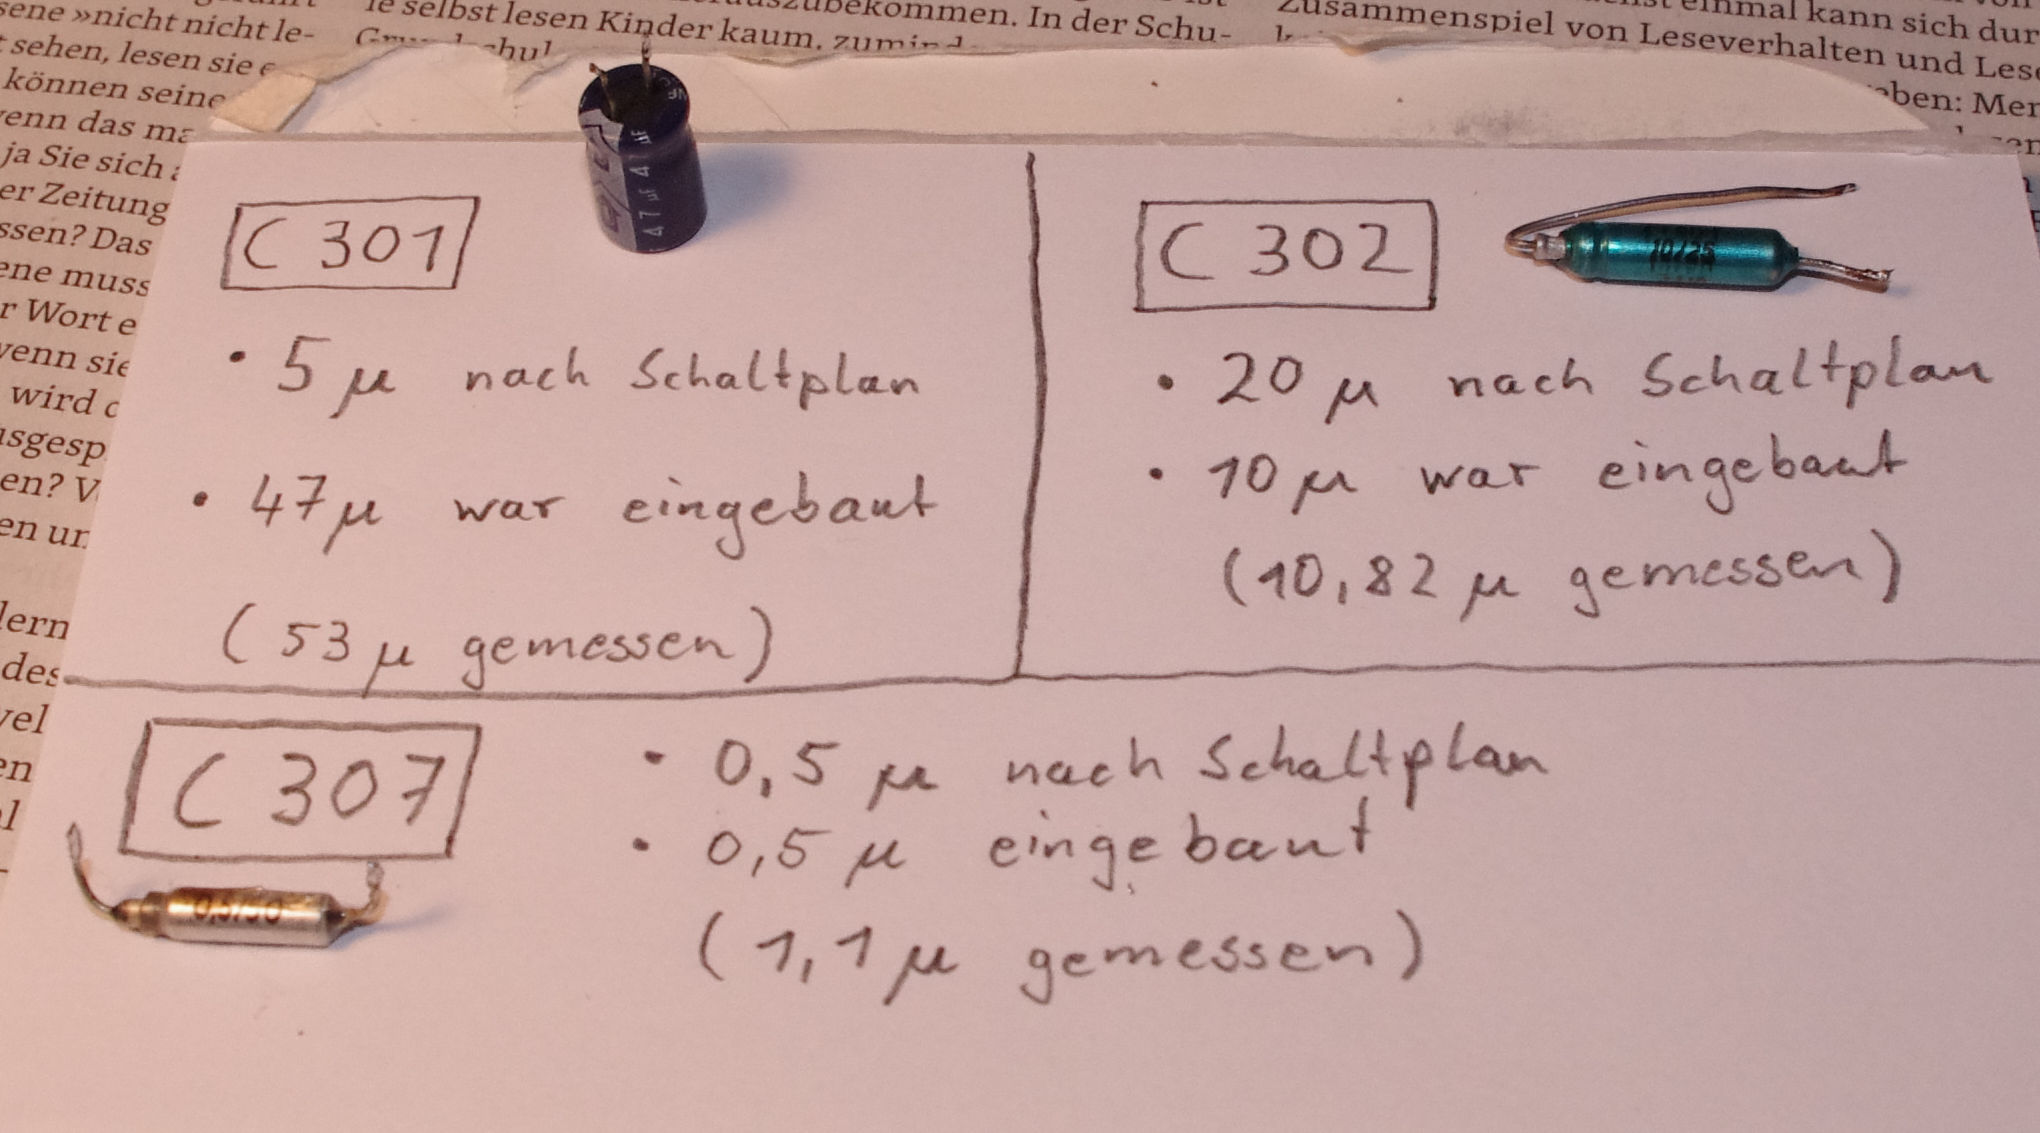 sene »nicht nicht le-
sehen, lesen sie
können seine
wenn das
ja Sie sich
er Zeitung
ssen? Das
ene muss
r Wort
wenn sie
wird
usgesp
en? V
en un
lern
des
vel
en
le selbst lesen Kinder kaum, zumind
auszubekommen. In der Schu-
Zusammenspiel von Leseverhalten und Lese
einmal kann sich dur
eben: Mer
C 301
47 µF 47 µF
• 5 µ nach Schaltplan
• 47 µ war eingebaut
(53 µ gemessen)
C 302
10/25
• 20 µ nach Schaltplan
• 10 µ war eingebaut
(10,82 µ gemessen)
C 307
0,5/50
• 0,5 µ nach Schaltplan
• 0,5 µ eingebaut
(1,1 µ gemessen)